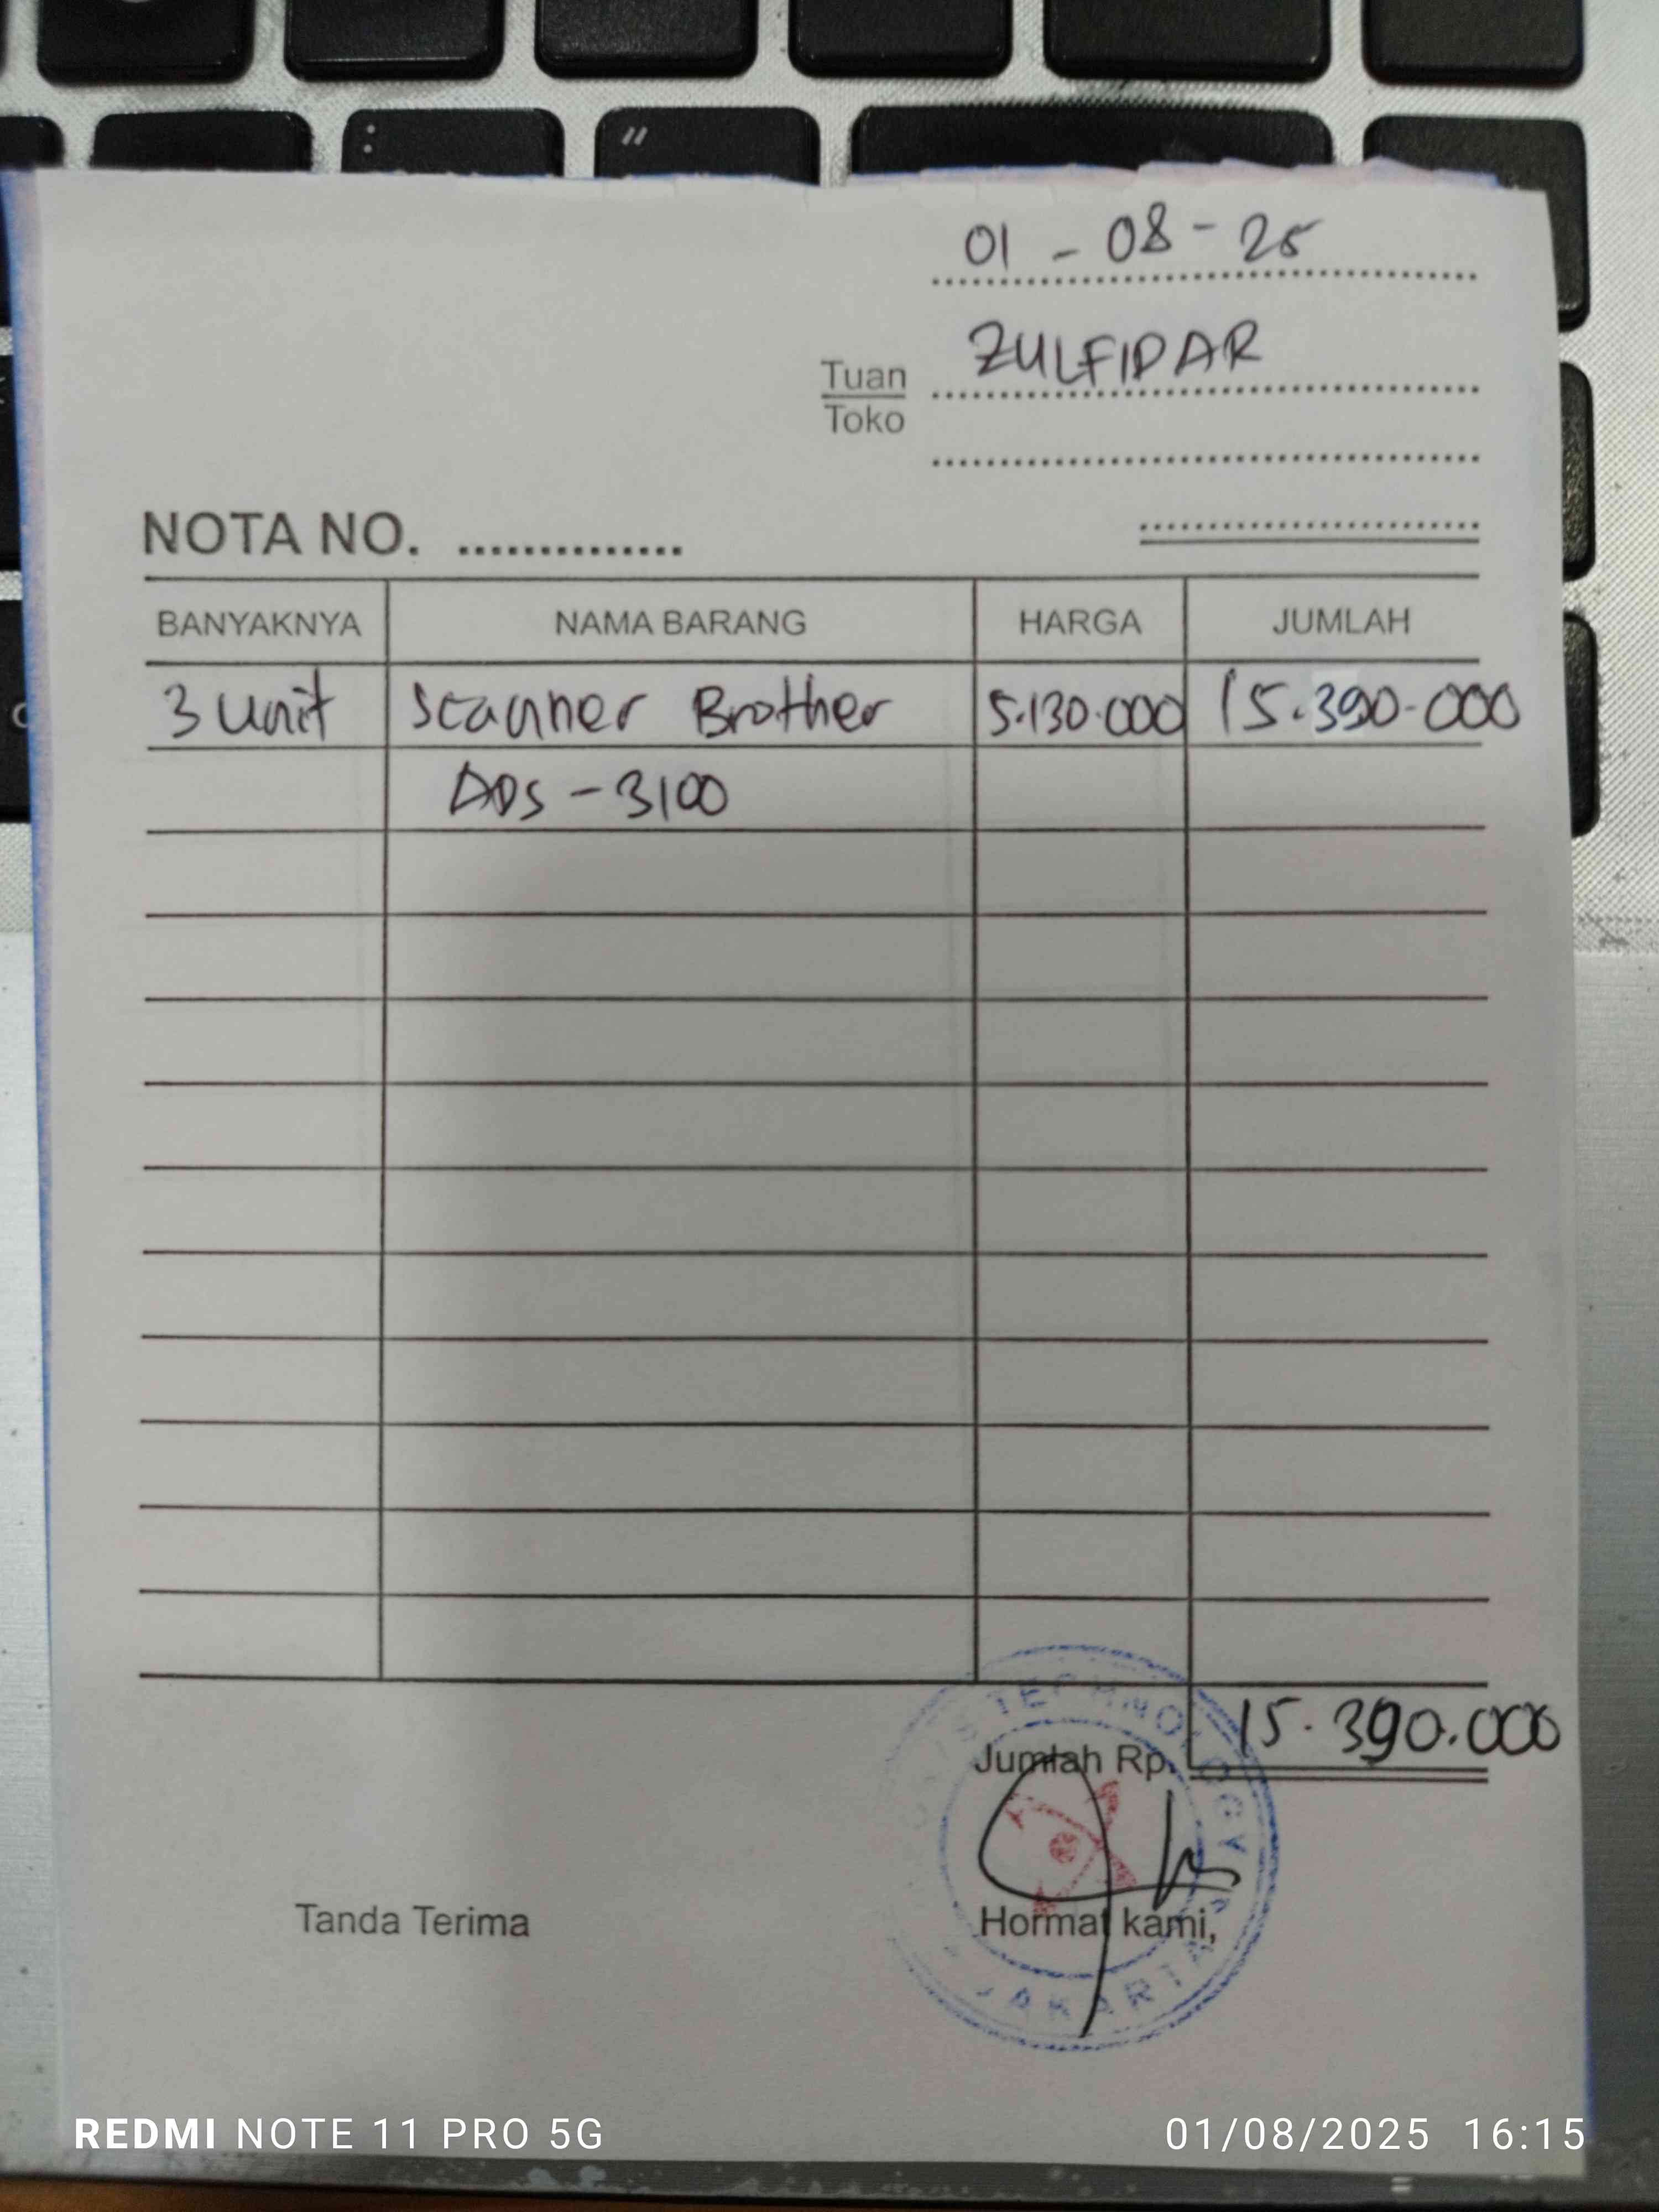 01 - 08 - 25
Tuan ZULFIDAR
Toko
NOTA NO. ..............
BANYAKNYA NAMA BARANG HARGA JUMLAH
3 Unit Scanner Brother 5.130.000 15.390.000
ADS - 3100
TECHNOLOGY
Jumlah Rp. 15.390.000
Tanda Terima Hormat kami,
JAKARTA
REDMI NOTE 11 PRO 5G 01/08/2025 16:15